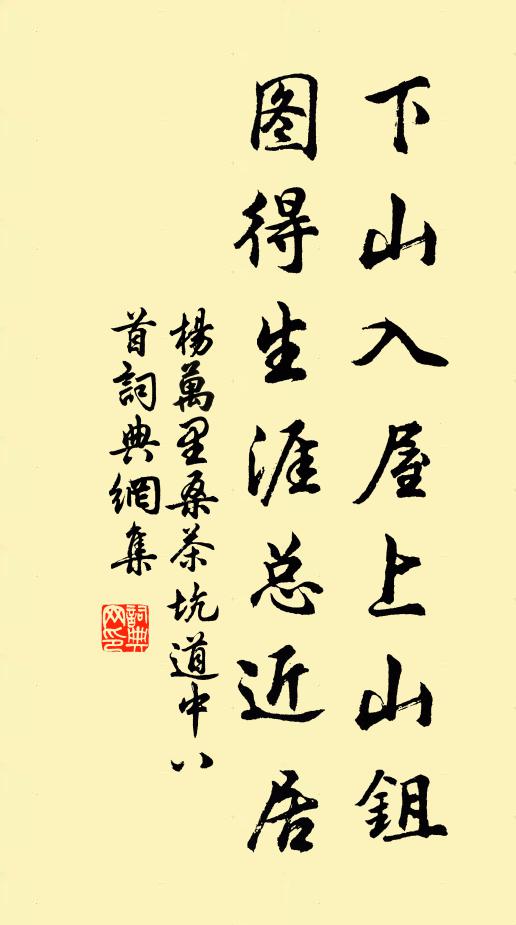 下山入屋上山鉏
图得生涯总近居
楊萬里桑茶坑道中八
首詞典網集
詞典
网印